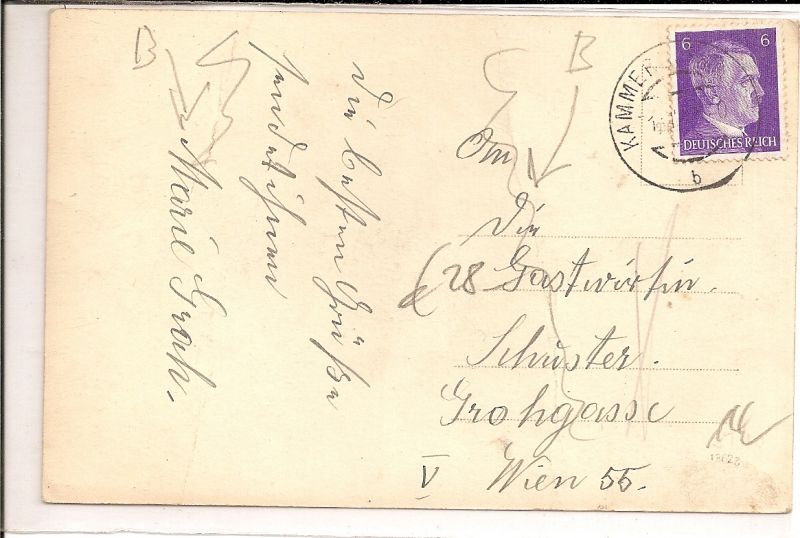 B
die besten Grüße
sendet Ihnen
Marie Groh.
B
An
die
(28 Gastwirtin.
Schuster.
Grohgasse
V Wien 55.
6 6
DEUTSCHES REICH
KAMMER
b